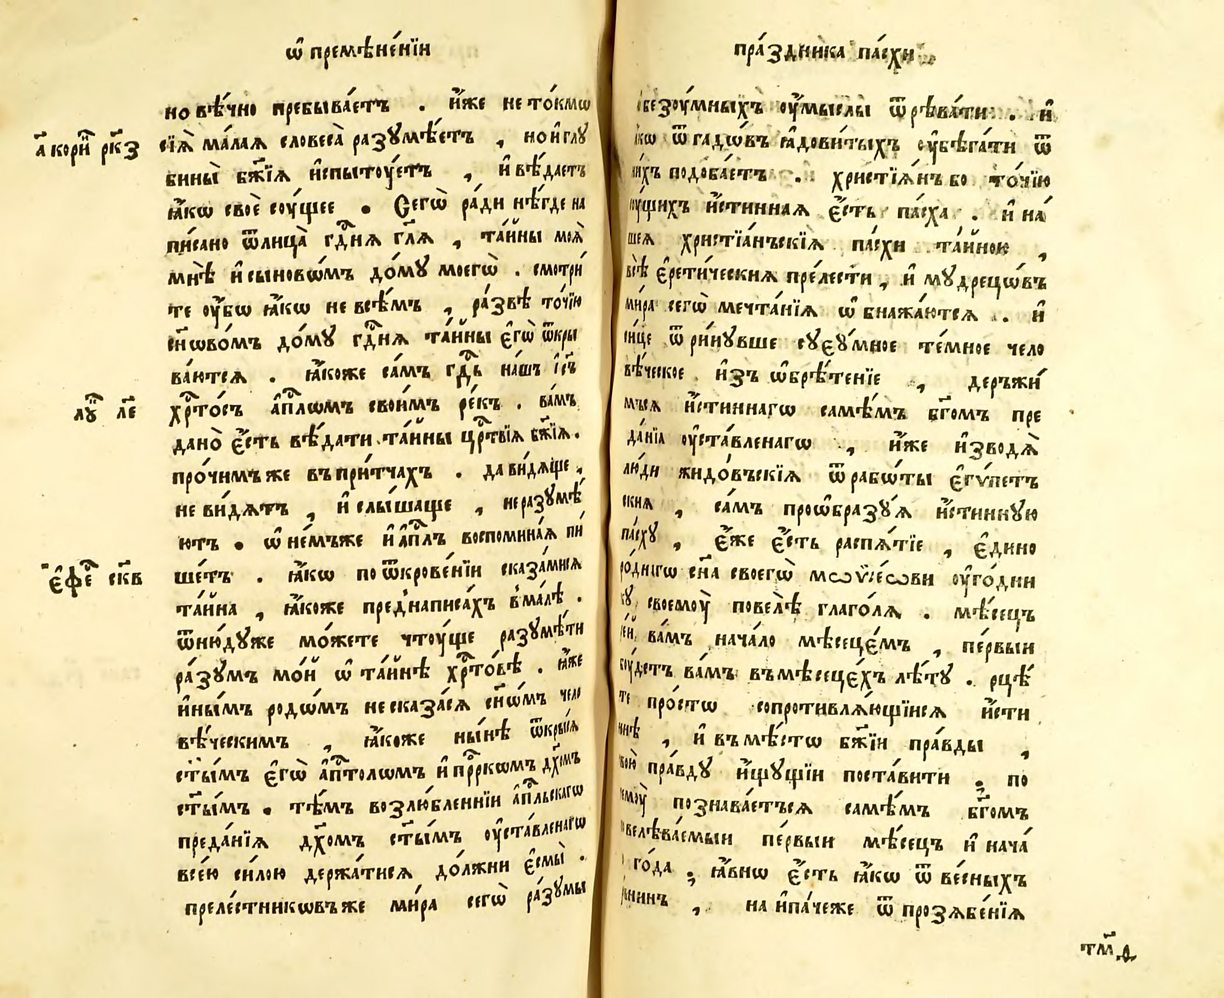 ѡ҆ премѣне́нїи
но вѣ́чно пребыва́етъ . и҆́же не то́кмѡ
а҃ кори҆ⷩ҇ рк҃з
сїѧ̀ ма́лаѧ словеса̀ разꙋмѣ́етъ , но и҆ глꙋ
бины̀ бж҃їѧ и҆спытꙋ́етъ , и҆ вѣ́даетъ
ꙗ҆́кѡ своѐ сꙋ́щее . Сегѡ̀ ра́ди нѣ́где на
пи́сано ѿ лица̀ гдⷭ҇нѧ гл҃ѧ , та́йны моѧ̀
мнѣ̀ и҆ сыновѡ́мъ до́мꙋ моегѡ̀ . смотри́
те ᲂу҆́бѡ ꙗ҆́кѡ не всѣ́мъ , ра́звѣ то́чїю
сн҃ѡвѡ́мъ до́мꙋ гдⷭ҇нѧ та́йны є҆гѡ̀ ѿкры
ва́ютсѧ . ꙗ҆́коже са́мъ гдⷭ҇ь на́шъ і҆с҃ъ
лꙋⷦ҇ л҃е
хрⷭ҇то́съ а҆пⷭ҇лѡмъ свои́мъ ре́къ . ва́мъ
дано̀ є҆́сть вѣ́дати та́йны црⷭ҇твїѧ бж҃їѧ .
про́чимъ же въ при́тчахъ . да ви́дѧще ,
не ви́дѧтъ , и҆ слы́шаще , не разꙋмѣ́
ютъ . ѡ҆ не́мъже и҆ а҆пⷭ҇лъ воспомина́ѧ пи́
є҆феⷭ҇ ск҃в
шетъ . ꙗ҆́кѡ по ѿкрове́нїи сказа́мисѧ
та́йна , ꙗ҆́коже преднаписа́хъ вма́лѣ .
ѿню́дꙋже мо́жете чтꙋ́ще разꙋмѣ́ти
ра́зꙋмъ мо́й ѡ҆ та́йнѣ хрⷭ҇то́вѣ . ꙗ҆́же
и҆ны́мъ родѡ́мъ не сказа́сѧ сн҃ѡ́мъ чело
вѣ́ческимъ , ꙗ҆́коже ны́нѣ ѿкры́сѧ
ст҃ы́мъ є҆гѡ̀ а҆пⷭ҇толѡмъ и҆ прⷪ҇ркѡмъ дх҃омъ
ст҃ы́мъ . тѣ́мъ возлю́бленнїи а҆пⷭ҇льскагѡ
преда́нїѧ дх҃омъ ст҃ы́мъ ᲂу҆ста́вленагѡ
все́ю си́лою держа́тисѧ до́лжни є҆смы̀ .
преле́стникѡвъ же ми́ра сегѡ̀ ра́зꙋмы
пра́здника па́схи
безꙋ́мныхъ ᲂу҆́мыслы ѿрѣва́ти . и҆
ѿ гадѡ́въ ꙗ҆дови́тыхъ ᲂу҆бѣга́ти ѿ
подоба́етъ . христїѧ́нъ бо то́чїю
и҆́стиннаѧ є҆́сть па́сха . и҆ на́
шеѧ христїа́нъскїѧ па́схи та́йною ,
всѣ̀ є҆рети́ческиѧ пре́лести , и҆ мꙋдрецѡ́въ
ми́ра сегѡ̀ мечта́нїѧ ѡ҆бнажа́ютсѧ . и҆
си́це ѿри́нꙋвше сꙋеꙋ́мное те́мное чело
вѣ́ческое и҆зъѡбрѣ́тенїе , держи́
мъсѧ и҆́стиннагѡ самѣ́мъ бг҃омъ пре
да́нїѧ ᲂу҆ста́вленагѡ , и҆́же и҆зводѧ̀
лю́ди жидо́въскїѧ ѿ рабѡ́ты є҆гѵ́петъ
скиѧ , са́мъ проѡбразꙋ́ѧ и҆́стиннꙋю
па́схꙋ , є҆́же є҆́сть распѧ́тїе , є҆дино
ро́днагѡ сн҃а своегѡ̀ мѡѷсе́ѡви ᲂу҆го́дни
кꙋ̀ своемꙋ̀ повелѣ̀ глаго́лѧ . мѣ́сецъ
се́й ва́мъ нача́ло мѣсеце́мъ , пе́рвыи
бꙋ́детъ ва́мъ въ мѣ́сецѣхъ лѣ́тꙋ . рцѣ́
те про́стѡ сопротивлѧ́ющїисѧ и҆́сти
ннѣ , и҆ въмѣ́стѡ бж҃їи пра́вды ,
свою̀ пра́вдꙋ и҆́щꙋщїи поста́вити . по
чемꙋ̀ познава́етъсѧ самѣ́мъ бг҃омъ
повелѣва́емыи пе́рвыи мѣ́сецъ и҆ нача́
го́да ; ꙗ҆́внѡ є҆́сть ꙗ҆́кѡ ѿ ве́сныхъ
, наи҆па́чеже ѿ прозѧбе́нїѧ
тмⷣа